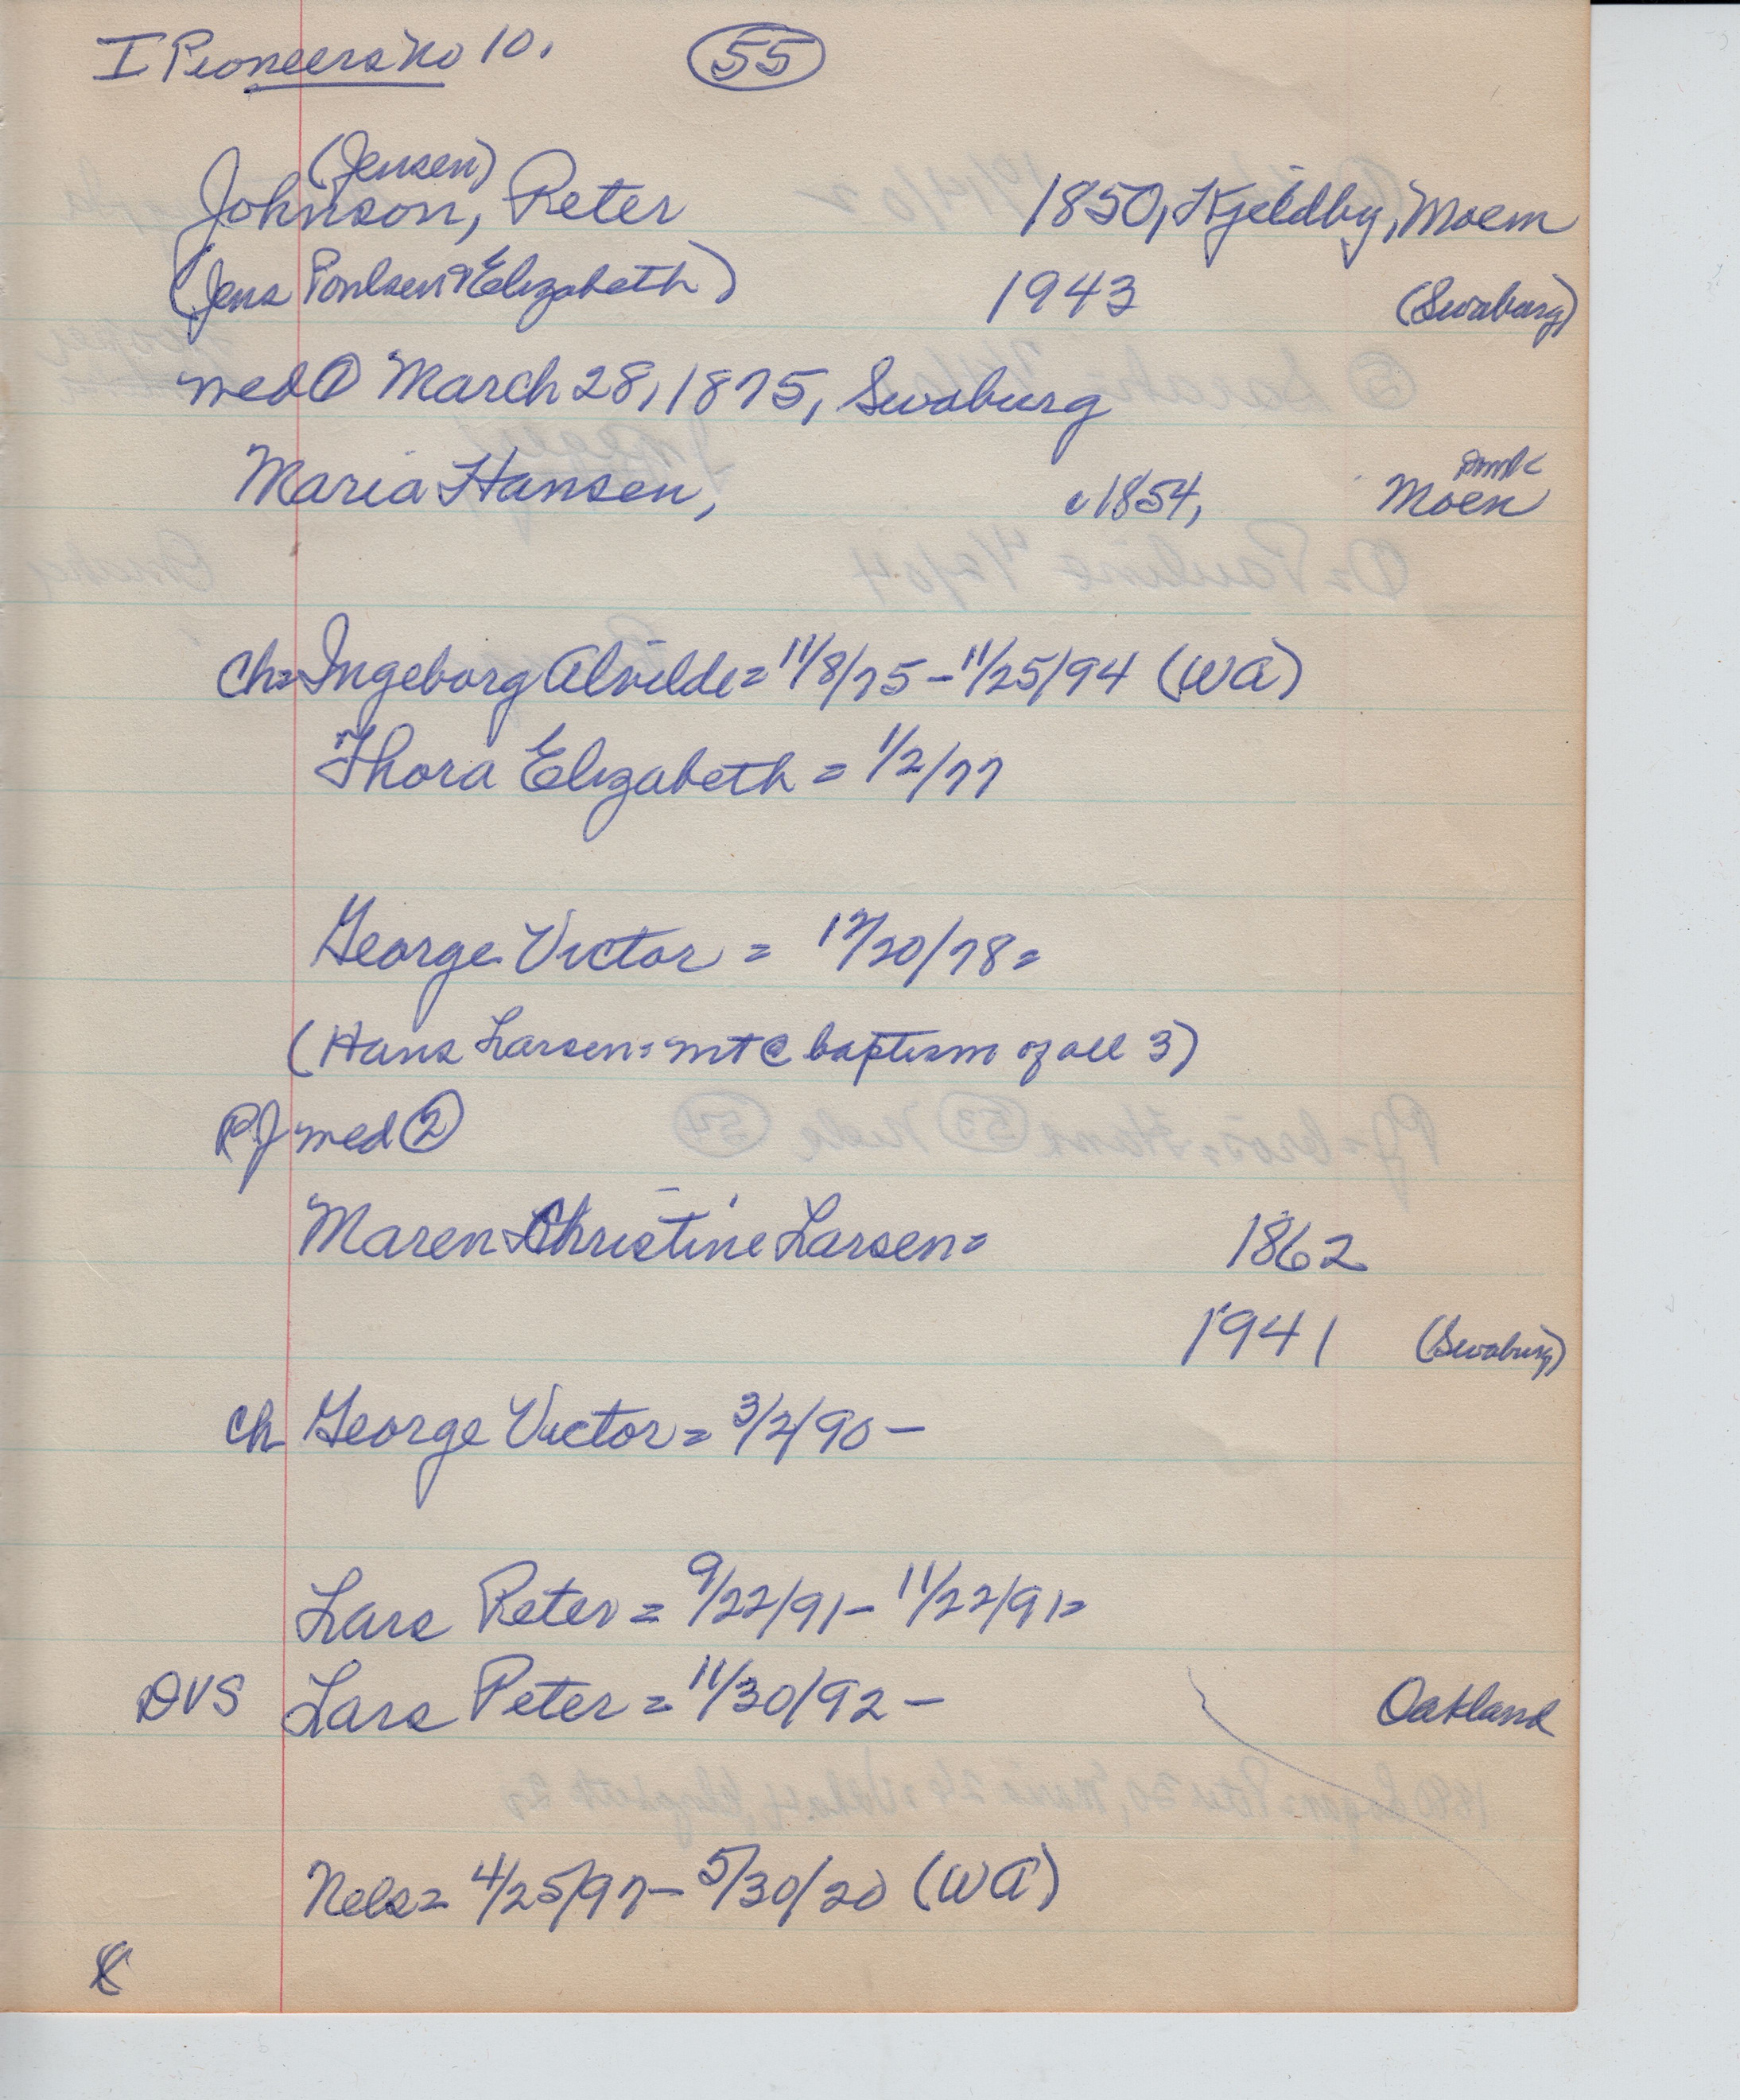 I Pioneers No 10. 55
(Jensen)
Johnson, Peter 1850, Kjeldby, Moem
(Jens Poulsen & Elizabeth) 1943 (Swaburg)
med ① March 28, 1875, Swaburg
Maria Hansen, c1854, Moen
Ch= Ingeborg Alvilde = 11/8/75 – 11/25/94 (WA)
Thora Elizabeth = 1/2/77
George Victor = 12/20/78=
(Hans Larsen = mt @ baptism of all 3)
PJ med ②
Maren Christine Larsen= 1862
1941 (Swaburg)
Ch George Victor = 3/2/90 –
Lars Peter = 9/22/91 – 11/22/91=
DVS Lars Peter = 11/30/92 – Oakland
Nels= 4/25/97 – 5/30/20 (WA)